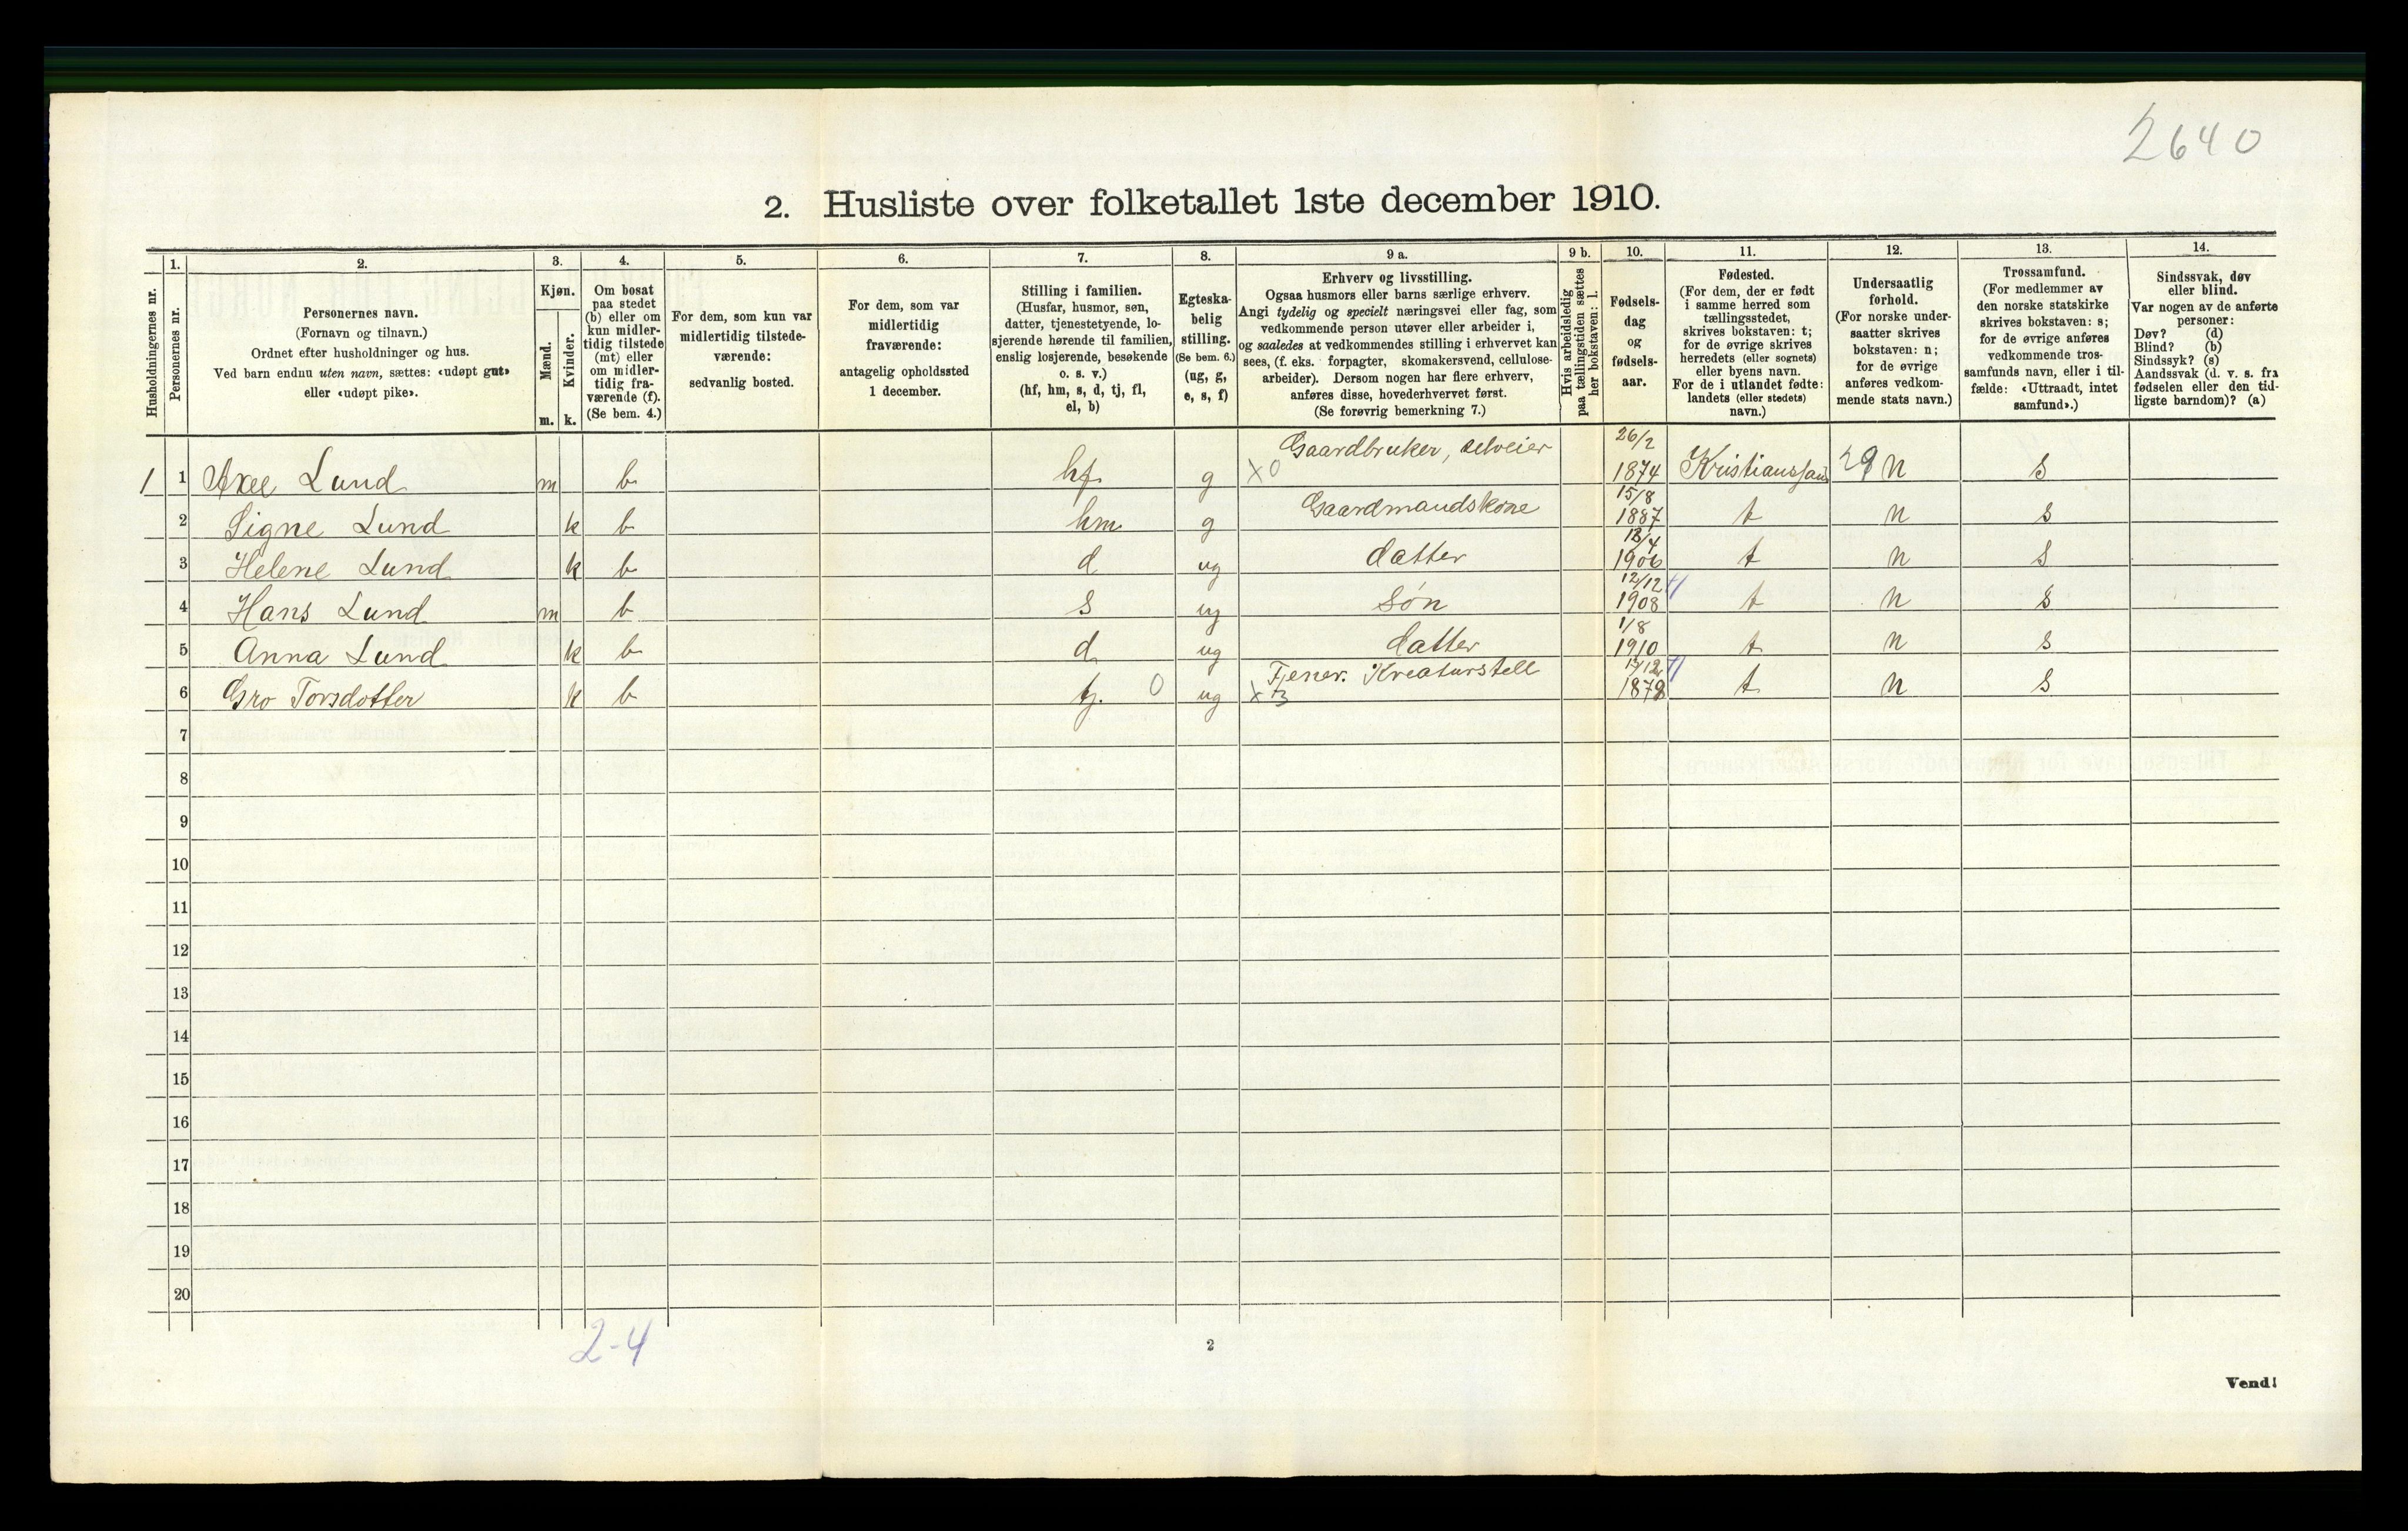 2640
2. Husliste over folketallet 1ste december 1910.
Husholdningernes nr.
1.
Personernes nr.
2.
Personernes navn.
(Fornavn og tilnavn.)
Ordnet efter husholdninger og hus.
Ved barn endnu uten navn, sættes: «udøpt gut»
eller «udøpt pike».
3.
Kjøn.
Mænd.
m.
Kvinder.
k.
4.
Om bosat
paa stedet
(b) eller om
kun midler-
tidig tilstede
(mt) eller
om midler-
tidig fra-
værende (f).
(Se bem. 4.)
5.
For dem, som kun var
midlertidig tilstede-
værende:
sedvanlig bosted.
6.
For dem, som var
midlertidig
fraværende:
antagelig opholdssted
1 december.
7.
Stilling i familien.
(Husfar, husmor, søn,
datter, tjenestetyende, lo-
sjerende hørende til familien,
enslig losjerende, besøkende
o. s. v.)
(hf, hm, s, d, tj, fl,
el, b)
8.
Egteska-
belig
stilling.
(Se bem. 6.)
(ug, g,
e, s, f)
9 a.
Erhverv og livsstilling.
Ogsaa husmors eller barns særlige erhverv.
Angi tydelig og specielt næringsvei eller fag, som
vedkommende person utøver eller arbeider i,
og saaledes at vedkommendes stilling i erhvervet kan
sees, (f. eks. forpagter, skomakersvend, cellulose-
arbeider). Dersom nogen har flere erhverv,
anføres disse, hovederhvervet først.
(Se forøvrig bemerkning 7.)
9 b.
Hvis arbeidsledig
paa tællingstiden sættes
her bokstaven: l.
10.
Fødsels-
dag
og
fødsels-
aar.
11.
Fødested.
(For dem, der er født
i samme herred som
tællingsstedet,
skrives bokstaven: t;
for de øvrige skrives
herredets (eller sognets)
eller byens navn.
For de i utlandet fødte:
landets (eller stedets)
navn.)
12.
Undersaatlig
forhold.
(For norske under-
saatter skrives
bokstaven: n;
for de øvrige
anføres vedkom-
mende stats navn.)
13.
Trossamfund.
(For medlemmer av
den norske statskirke
skrives bokstaven: s;
for de øvrige anføres
vedkommende tros-
samfunds navn, eller i til-
fælde: «Uttraadt, intet
samfund».)
14.
Sindssvak, døv
eller blind.
Var nogen av de anførte
personer:
Døv? (d)
Blind? (b)
Sindssyk? (s)
Aandssvak (d. v. s. fra
fødselen eller den tid-
ligste barndom)? (a)
1 1 Axel Lund m b hf g X0 Gaardbruker, selveier 26/2 1874 Kristianssand 29 n s
2 Signe Lund k b hm g Gaardmandskone 15/8 1887 t n s
3 Helene Lund k b d ug datter 1906 t n s
4 Hans Lund m b s ug Søn 12/12 1908 t n s
5 Anna Lund k b d ug datter 1/8 1910 t n s
6 Gro Torsdotter k b tj. 0 ug Tjener. Kreaturstell t n s
7
8
9
10
11
12
13
14
15
16
17
18
19
20
2-4
2
Vend!